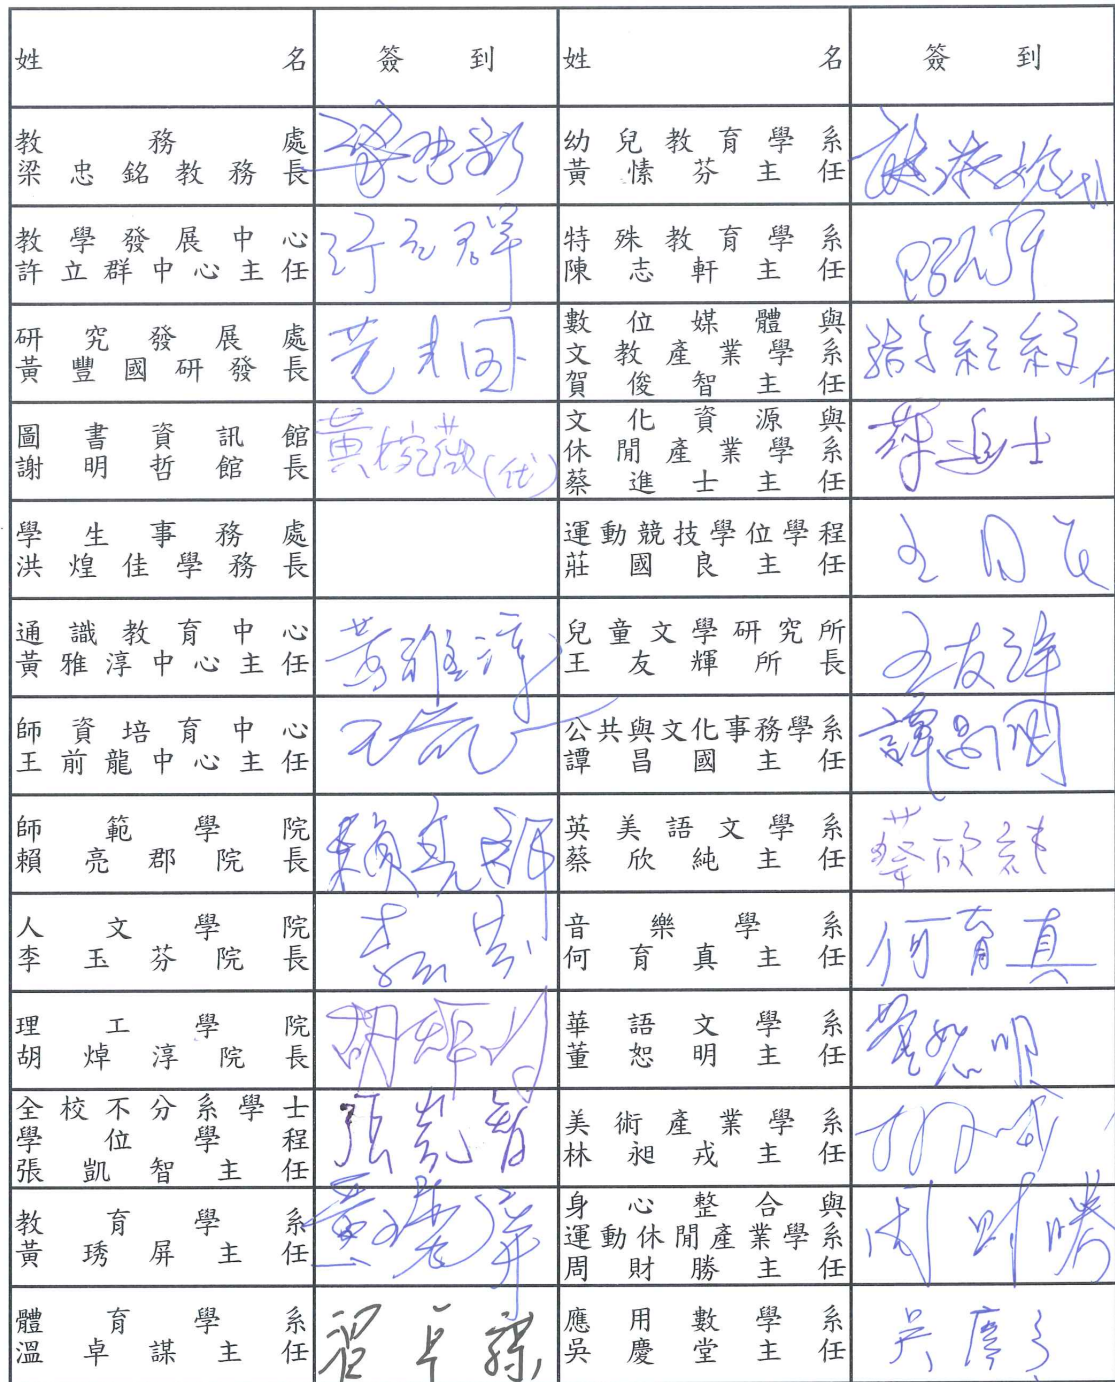 姓名 簽到 姓名 簽到
教務處
梁忠銘教務長
幼兒教育學系
黃愫芬主任
教學發展中心
許立群中心主任
許立群
特殊教育學系
陳志軒主任
研究發展處
黃豐國研發長
數位媒體與
文教產業學系
賀俊智主任
圖書資訊館
謝明哲館長
黃婉薇(代)
文化資源與
休閒產業學系
蔡進士主任
蔡進士
學生事務處
洪煌佳學務長
運動競技學位學程
莊國良主任
通識教育中心
黃雅淳中心主任
黃雅淳
兒童文學研究所
王友輝所長
王友輝
師資培育中心
王前龍中心主任
公共與文化事務學系
譚昌國主任
譚昌國
師範學院
賴亮郡院長
賴亮郡
英美語文學系
蔡欣純主任
蔡欣純
人文學院
李玉芬院長
音樂學系
何育真主任
何育真
理工學院
胡焯淳院長
胡焯淳
華語文學系
董恕明主任
董恕明
全校不分系學士
學位學程
張凱智主任
張凱智
美術產業學系
林昶戎主任
教育學系
黃琇屏主任
黃琇屏
身心整合與
運動休閒產業學系
周財勝主任
周財勝
體育學系
溫卓謀主任
溫卓謀
應用數學系
吳慶堂主任